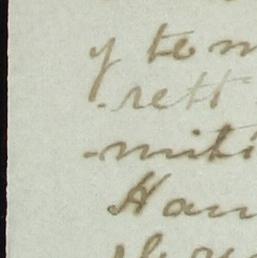 y tem
-rett
-miti
Han